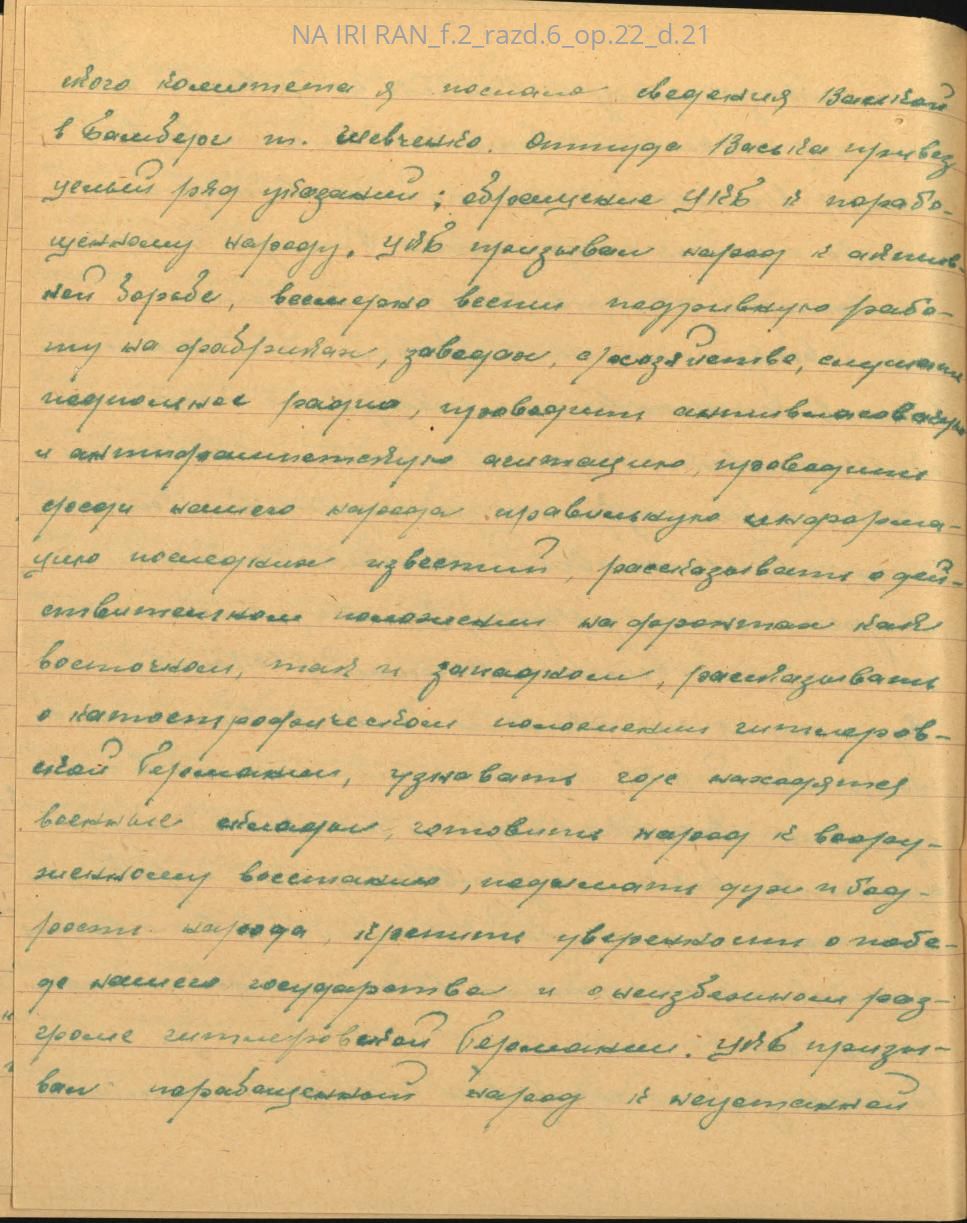 NA IRI RAN_f.2_razd.6_op.22_d.21
ского комитета я послала сведения Васькой
в Бамберг т. Шевченко. Оттуда Васька привез
целый ряд указаний; обращение ЦКБ к порабо-
щенному народу. ЦКБ призывал народ к актив-
ной борьбе, всемерно вести подрывную рабо-
ту на фабриках, заводах, с/хозяйстве, слушать
подпольное радио, проводить антивласовскую
и антифашистскую агитацию, проводить
среди нашего народа правильную информа-
цию последних известий, рассказывать о дей-
ствительном положении на фронтах как
восточном, так и западном, рассказывать
о катострофическом положении гитлеров-
ской Германии, узнавать где находятся
военные склады, готовить народ к воору-
женному восстанию, подымать дух и бод-
рость народа, крепить уверенность о побе-
де нашего государства и о неизбежном раз-
громе гитлеровской Германии. ЦКБ призы-
вал порабощенный народ к неустанной